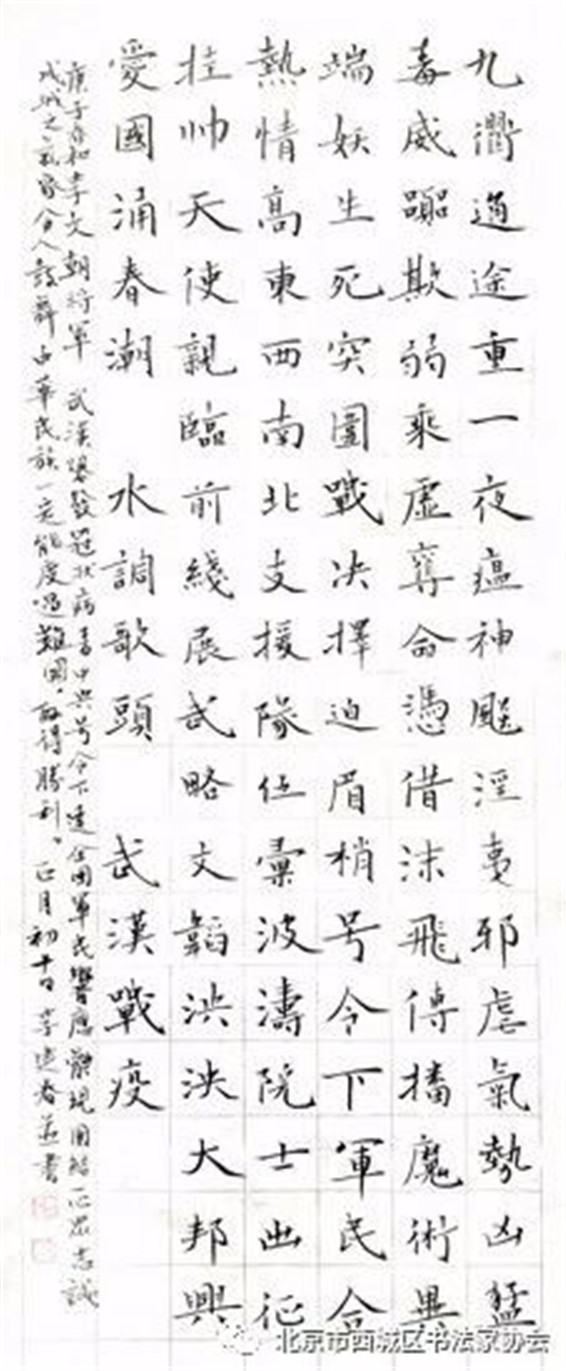 九衢通途重一夜瘟神飚淫夷邪虐氣勢凶猛
毒威欺弱乘虛奪命憑借沫飛傳播魔術異
端妖生死突圍戰决擇迫眉梢号令下軍民合
熱情高東西南北支援隊伍彙波濤院士出征
挂帅天使親臨前綫展武略文韜泱泱大邦興
愛國涌春潮 水調歌頭 武漢戰疫
庚子春和李文朝將軍 武漢爆發冠狀病毒中央号令下達全国軍民響應體現團結一心眾志誠
成城之氣象令人鼓舞中華民族一定能度過難関,取得勝利。正月初十日李建春并書
北京市西城区书法家协会